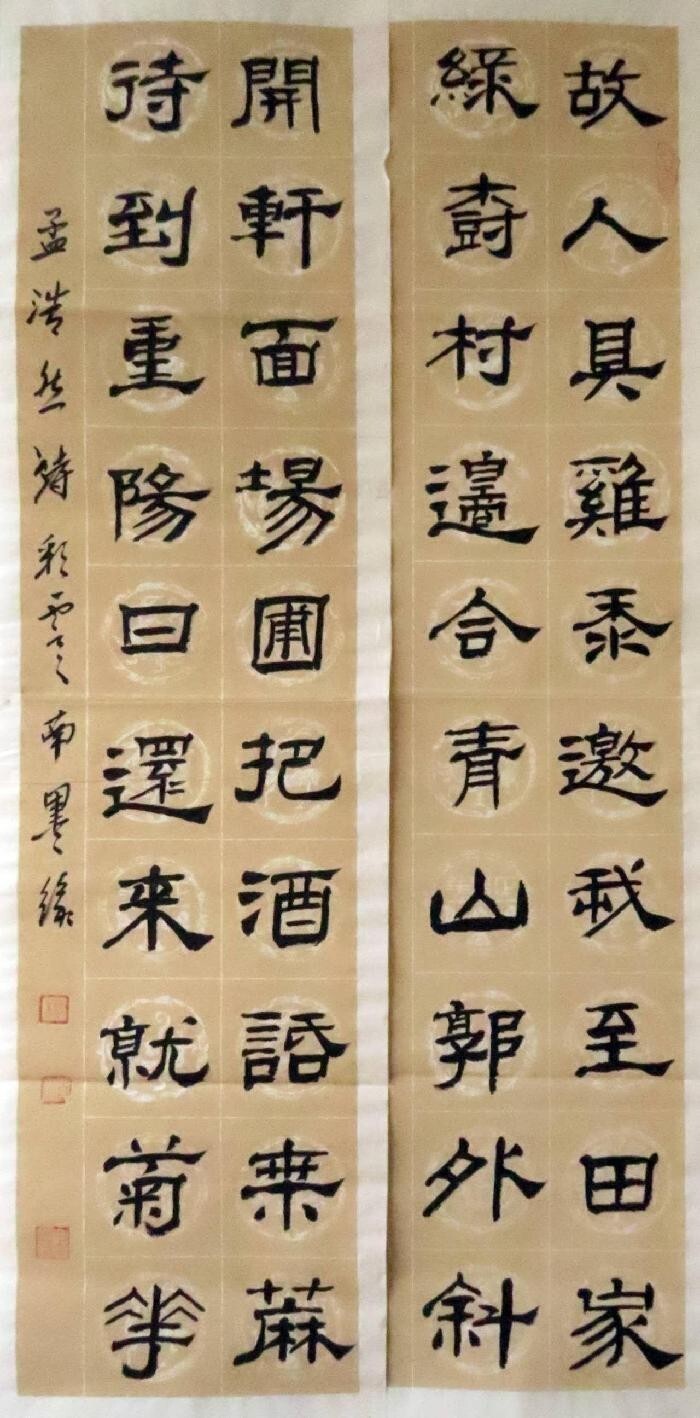 故人具雞黍邀我至田家
綠樹村邊合青山郭外斜
開軒面場圃把酒話桒蔴
待到重陽日還来就菊花
孟浩然詩彩雲之南墨緣